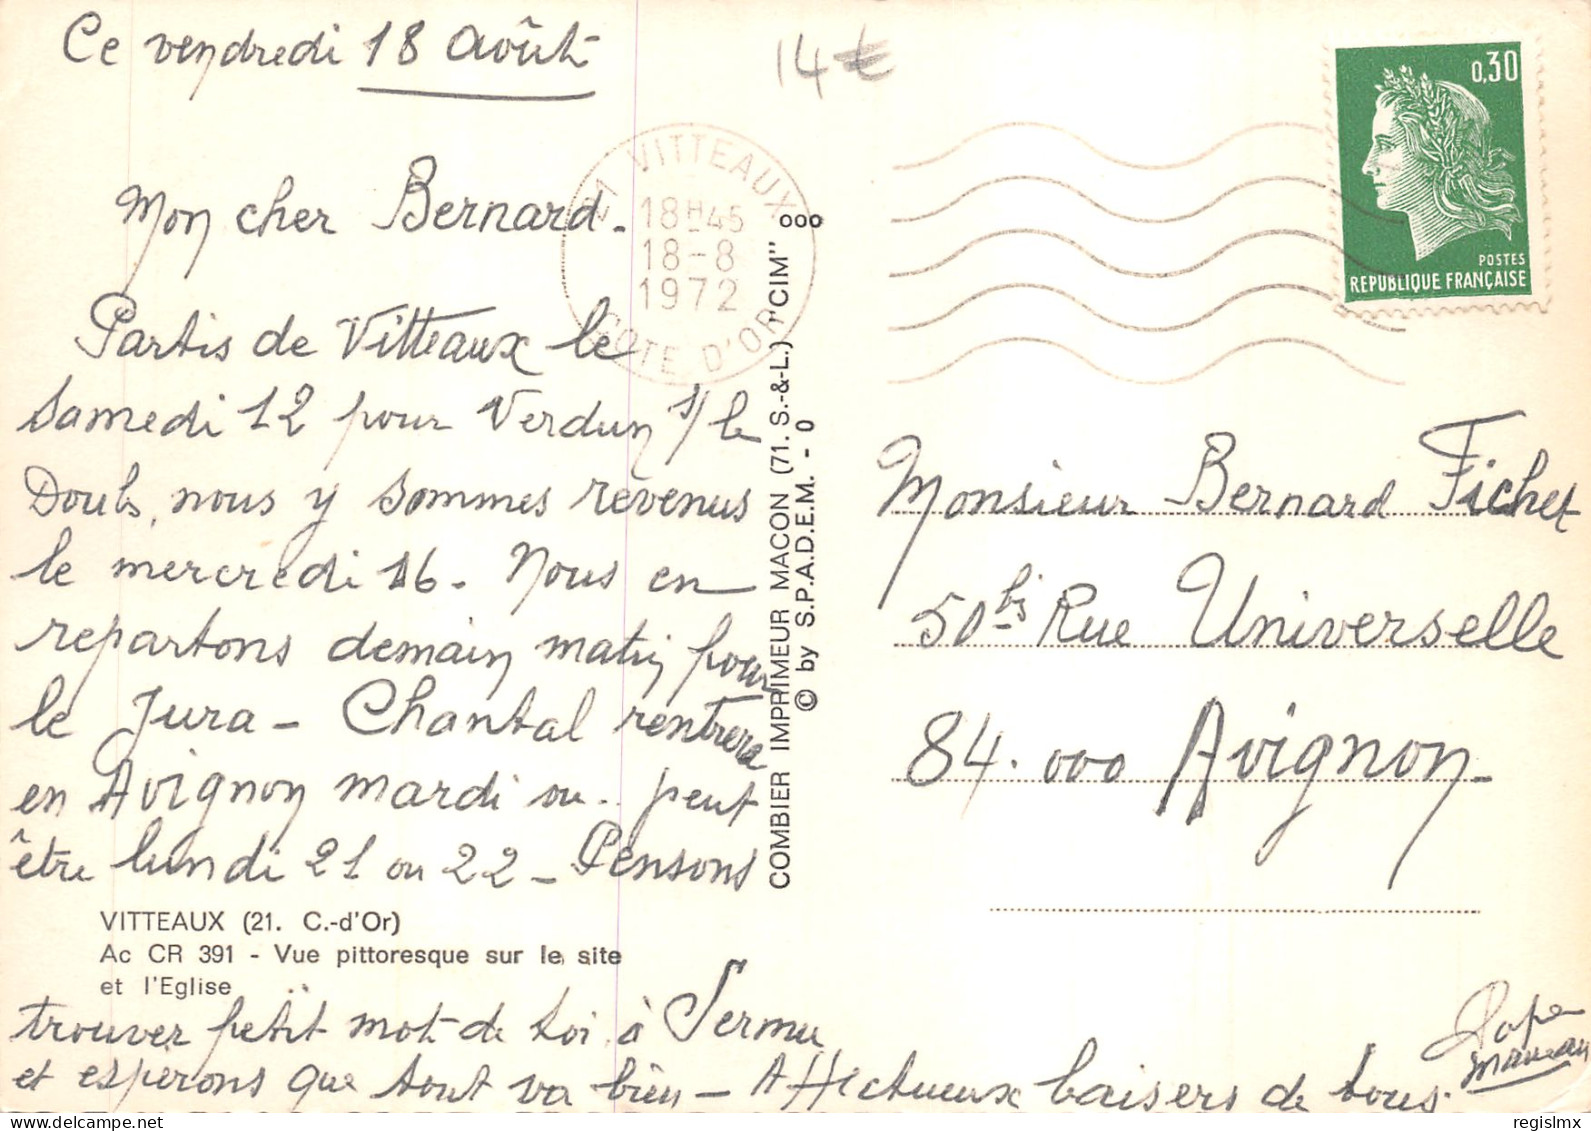 Ce vendredi 18 Août
14€
Mon cher Bernard.
Partis de Vitteaux le
samedi 12 pour Verdun s/ le
Doubs, nous y sommes revenus
le mercredi 16. Nous en
repartons demain matin pour
le Jura - Chantal rentrera
en Avignon mardi ou.. peut
être lundi 21 ou 22 - Pensons
VITTEAUX (21. C.-d'Or)
Ac CR 391 - Vue pittoresque sur le site
et l'Eglise
trouver petit mot de toi à Sermu
et espérons que tout va bien - Affectueux baisers de tous.
Papa
maman
21 VITTEAUX
18H45
18-8
1972
COTE D'OR
COMBIER IMPRIMEUR MACON (71. S.-&-L.) "CIM"
© by S.P.A.D.E.M. - 0
000
0,30
POSTES
REPUBLIQUE FRANÇAISE
Monsieur Bernard Fichet
50 bis Rue Universelle
84.000 Avignon
regislmx